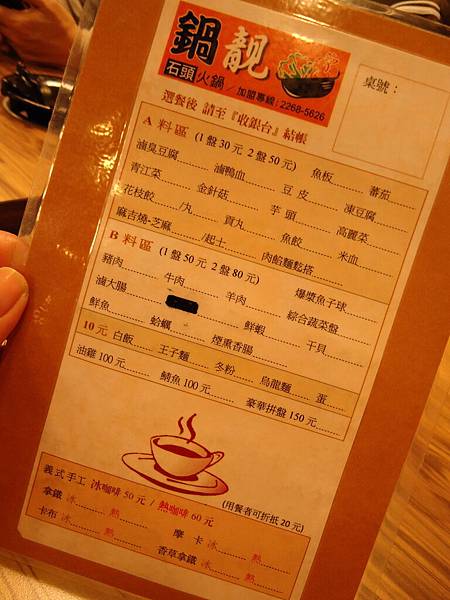 鍋靚
石頭火鍋/加盟專線:2268-5626
桌號:
選餐後 請至『收銀台』結帳
A 料區 (1盤30元 2盤50元)
滷臭豆腐 滷鴨血 豆皮 魚板 蕃茄
青江菜 金針菇 芋頭 凍豆腐
花枝餃 /丸 貢丸 魚餃 高麗菜
麻吉燒-芝麻 /起士 肉餡麵 米血
B 料區 (1盤50元 2盤80元)
豬肉 牛肉 羊肉 爆漿魚子球
滷大腸 鮮蝦 綜合蔬菜盤
鮮魚 蛤蠣 煙熏香腸 干貝
10元 白飯 王子麵 冬粉 烏龍麵 蛋
油雞100元 鯖魚100元 豪華拼盤150元
義式手工 冰咖啡50元/熱咖啡60元 (用餐者可折抵20元)
拿鐵 冰 熱 摩卡 冰 熱
卡布 冰 熱 香草拿鐵 冰 熱